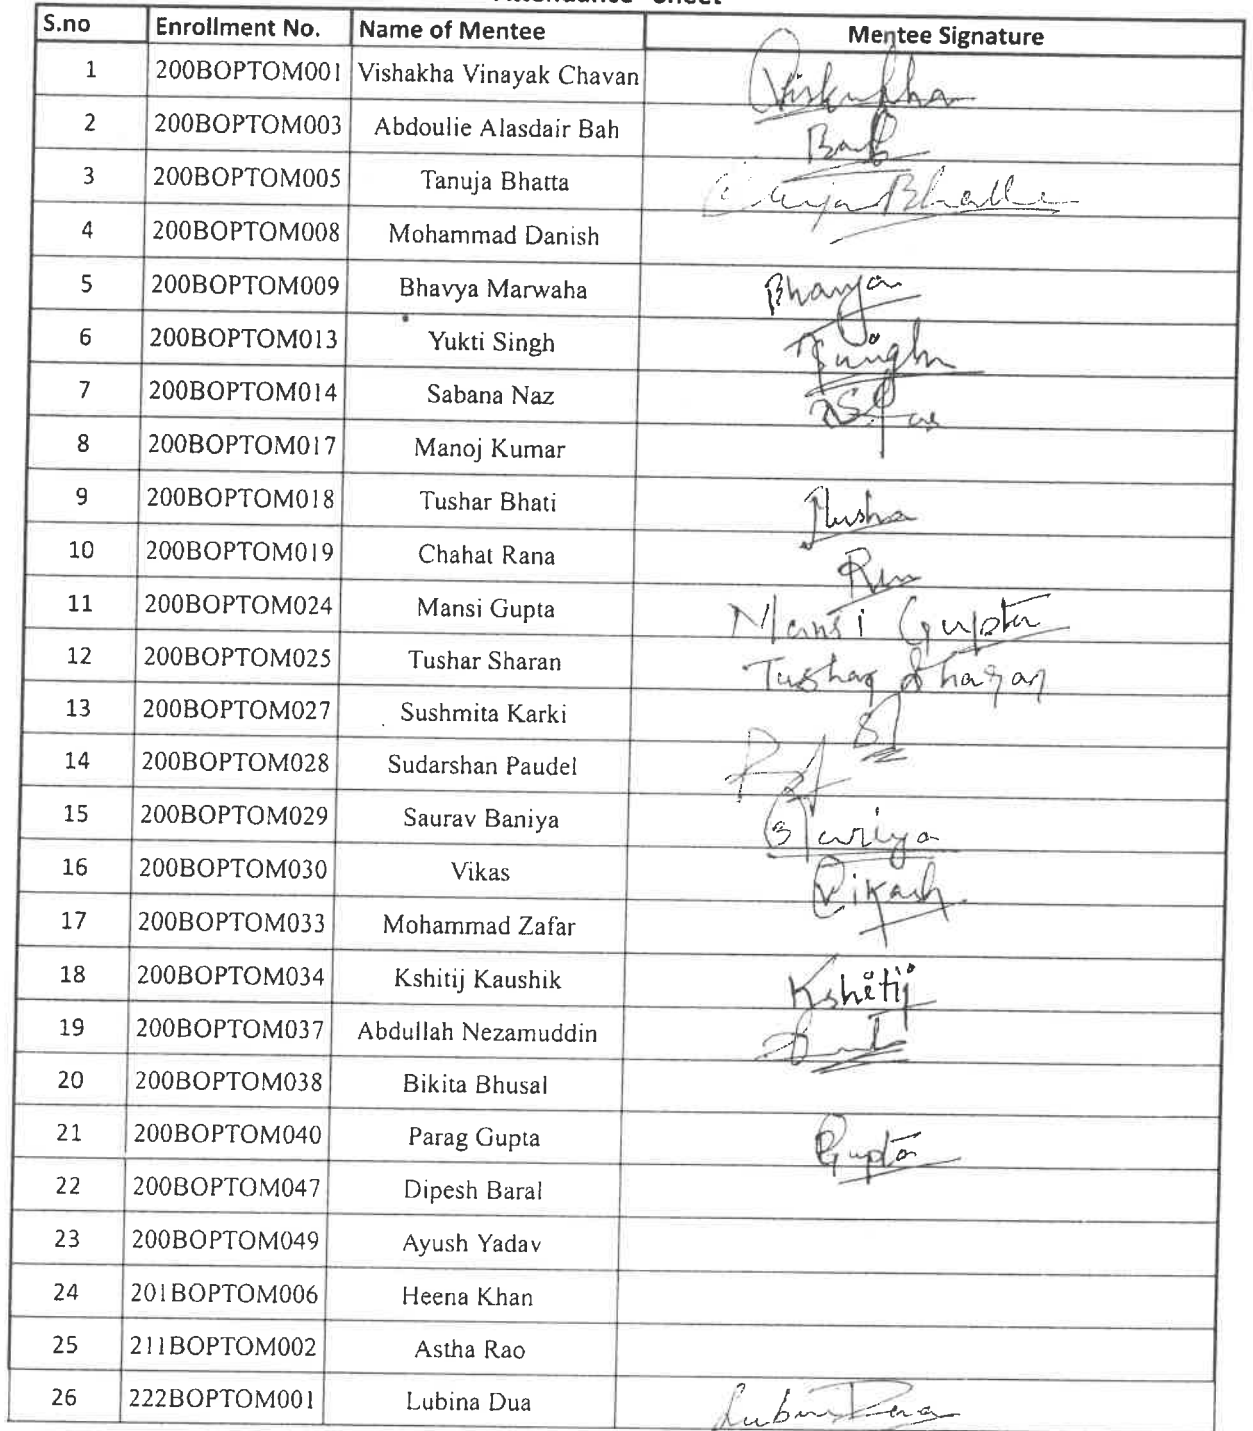 S.no Enrollment No. Name of Mentee Mentee Signature
1 200BOPTOM001 Vishakha Vinayak Chavan Viskukha
2 200BOPTOM003 Abdoulie Alasdair Bah Bah
3 200BOPTOM005 Tanuja Bhatta
4 200BOPTOM008 Mohammad Danish
5 200BOPTOM009 Bhavya Marwaha Bhavya
6 200BOPTOM013 Yukti Singh
7 200BOPTOM014 Sabana Naz
8 200BOPTOM017 Manoj Kumar
9 200BOPTOM018 Tushar Bhati
10 200BOPTOM019 Chahat Rana
11 200BOPTOM024 Mansi Gupta Mansi Gupta
12 200BOPTOM025 Tushar Sharan Tushar Sharan
13 200BOPTOM027 Sushmita Karki
14 200BOPTOM028 Sudarshan Paudel
15 200BOPTOM029 Saurav Baniya
16 200BOPTOM030 Vikas Vikash
17 200BOPTOM033 Mohammad Zafar
18 200BOPTOM034 Kshitij Kaushik Kshitij
19 200BOPTOM037 Abdullah Nezamuddin
20 200BOPTOM038 Bikita Bhusal
21 200BOPTOM040 Parag Gupta Gupta
22 200BOPTOM047 Dipesh Baral
23 200BOPTOM049 Ayush Yadav
24 201BOPTOM006 Heena Khan
25 211BOPTOM002 Astha Rao
26 222BOPTOM001 Lubina Dua Lubina Dua